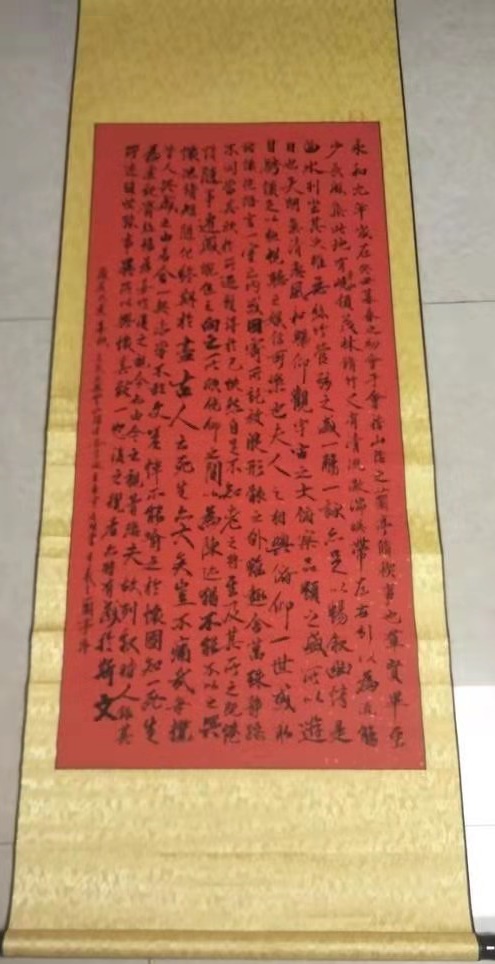 永和九年歲在癸丑暮春之初會于會稽山陰之蘭亭脩稧事也羣賢畢至
少長咸集此地有峻領茂林脩竹又有清流激湍暎帶左右引以為流觴
曲水列坐其次雖無絲竹管弦之盛一觴一詠亦足以暢叙幽情是
日也天朗氣清惠風和暢仰觀宇宙之大俯察品類之盛所以遊
目騁懷足以極視聽之娛信可樂也夫人之相與俯仰一世或取
諸懷抱悟言一室之內或因寄所託放浪形骸之外雖趣舍萬殊靜躁
不同當其欣於所遇蹔得於己怏然自足不知老之將至及其所之既惓
情隨事遷感慨係之向之所欣俛仰之間以為陳迹猶不能不以之興
懷況脩短隨化終期於盡古人云死生亦大矣豈不痛哉每攬
昔人興感之由若合一契未嘗不臨文嗟悼不能喻之於懷固知一死生
為虛誕齊彭殤為妄作後之視今亦由今之視昔悲夫故列叙時人錄其
所述雖世殊事異所以興懷其致一也後之攬者亦將有感於斯文